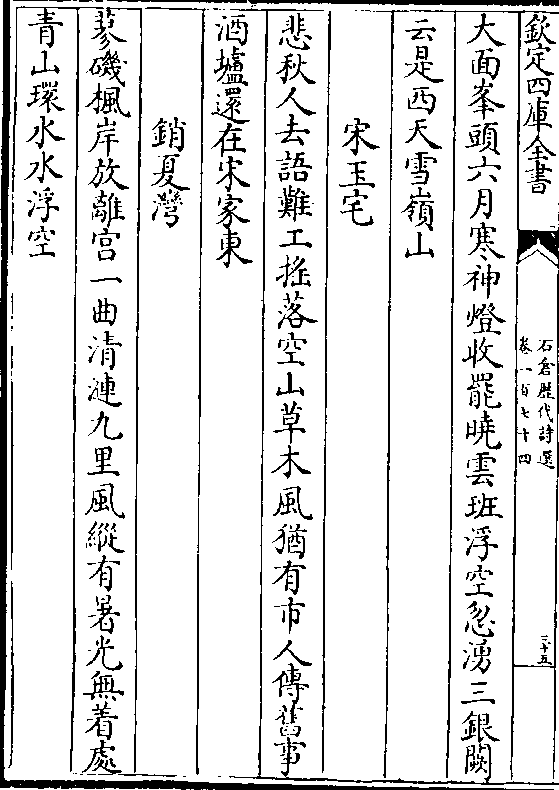 欽定四庫全書
石倉歷代詩選
卷一百七十四
三十五
大面峯頭六月寒神燈收罷曉雲班浮空忽湧三銀闕
云是西天雪嶺山
宋玉宅
悲秋人去語難工摇落空山草木風猶有市人傳舊事
酒壚還在宋家東
銷夏灣
蓼磯楓岸放離宫一曲清漣九里風縱有暑光無着處
青山環水水浮空